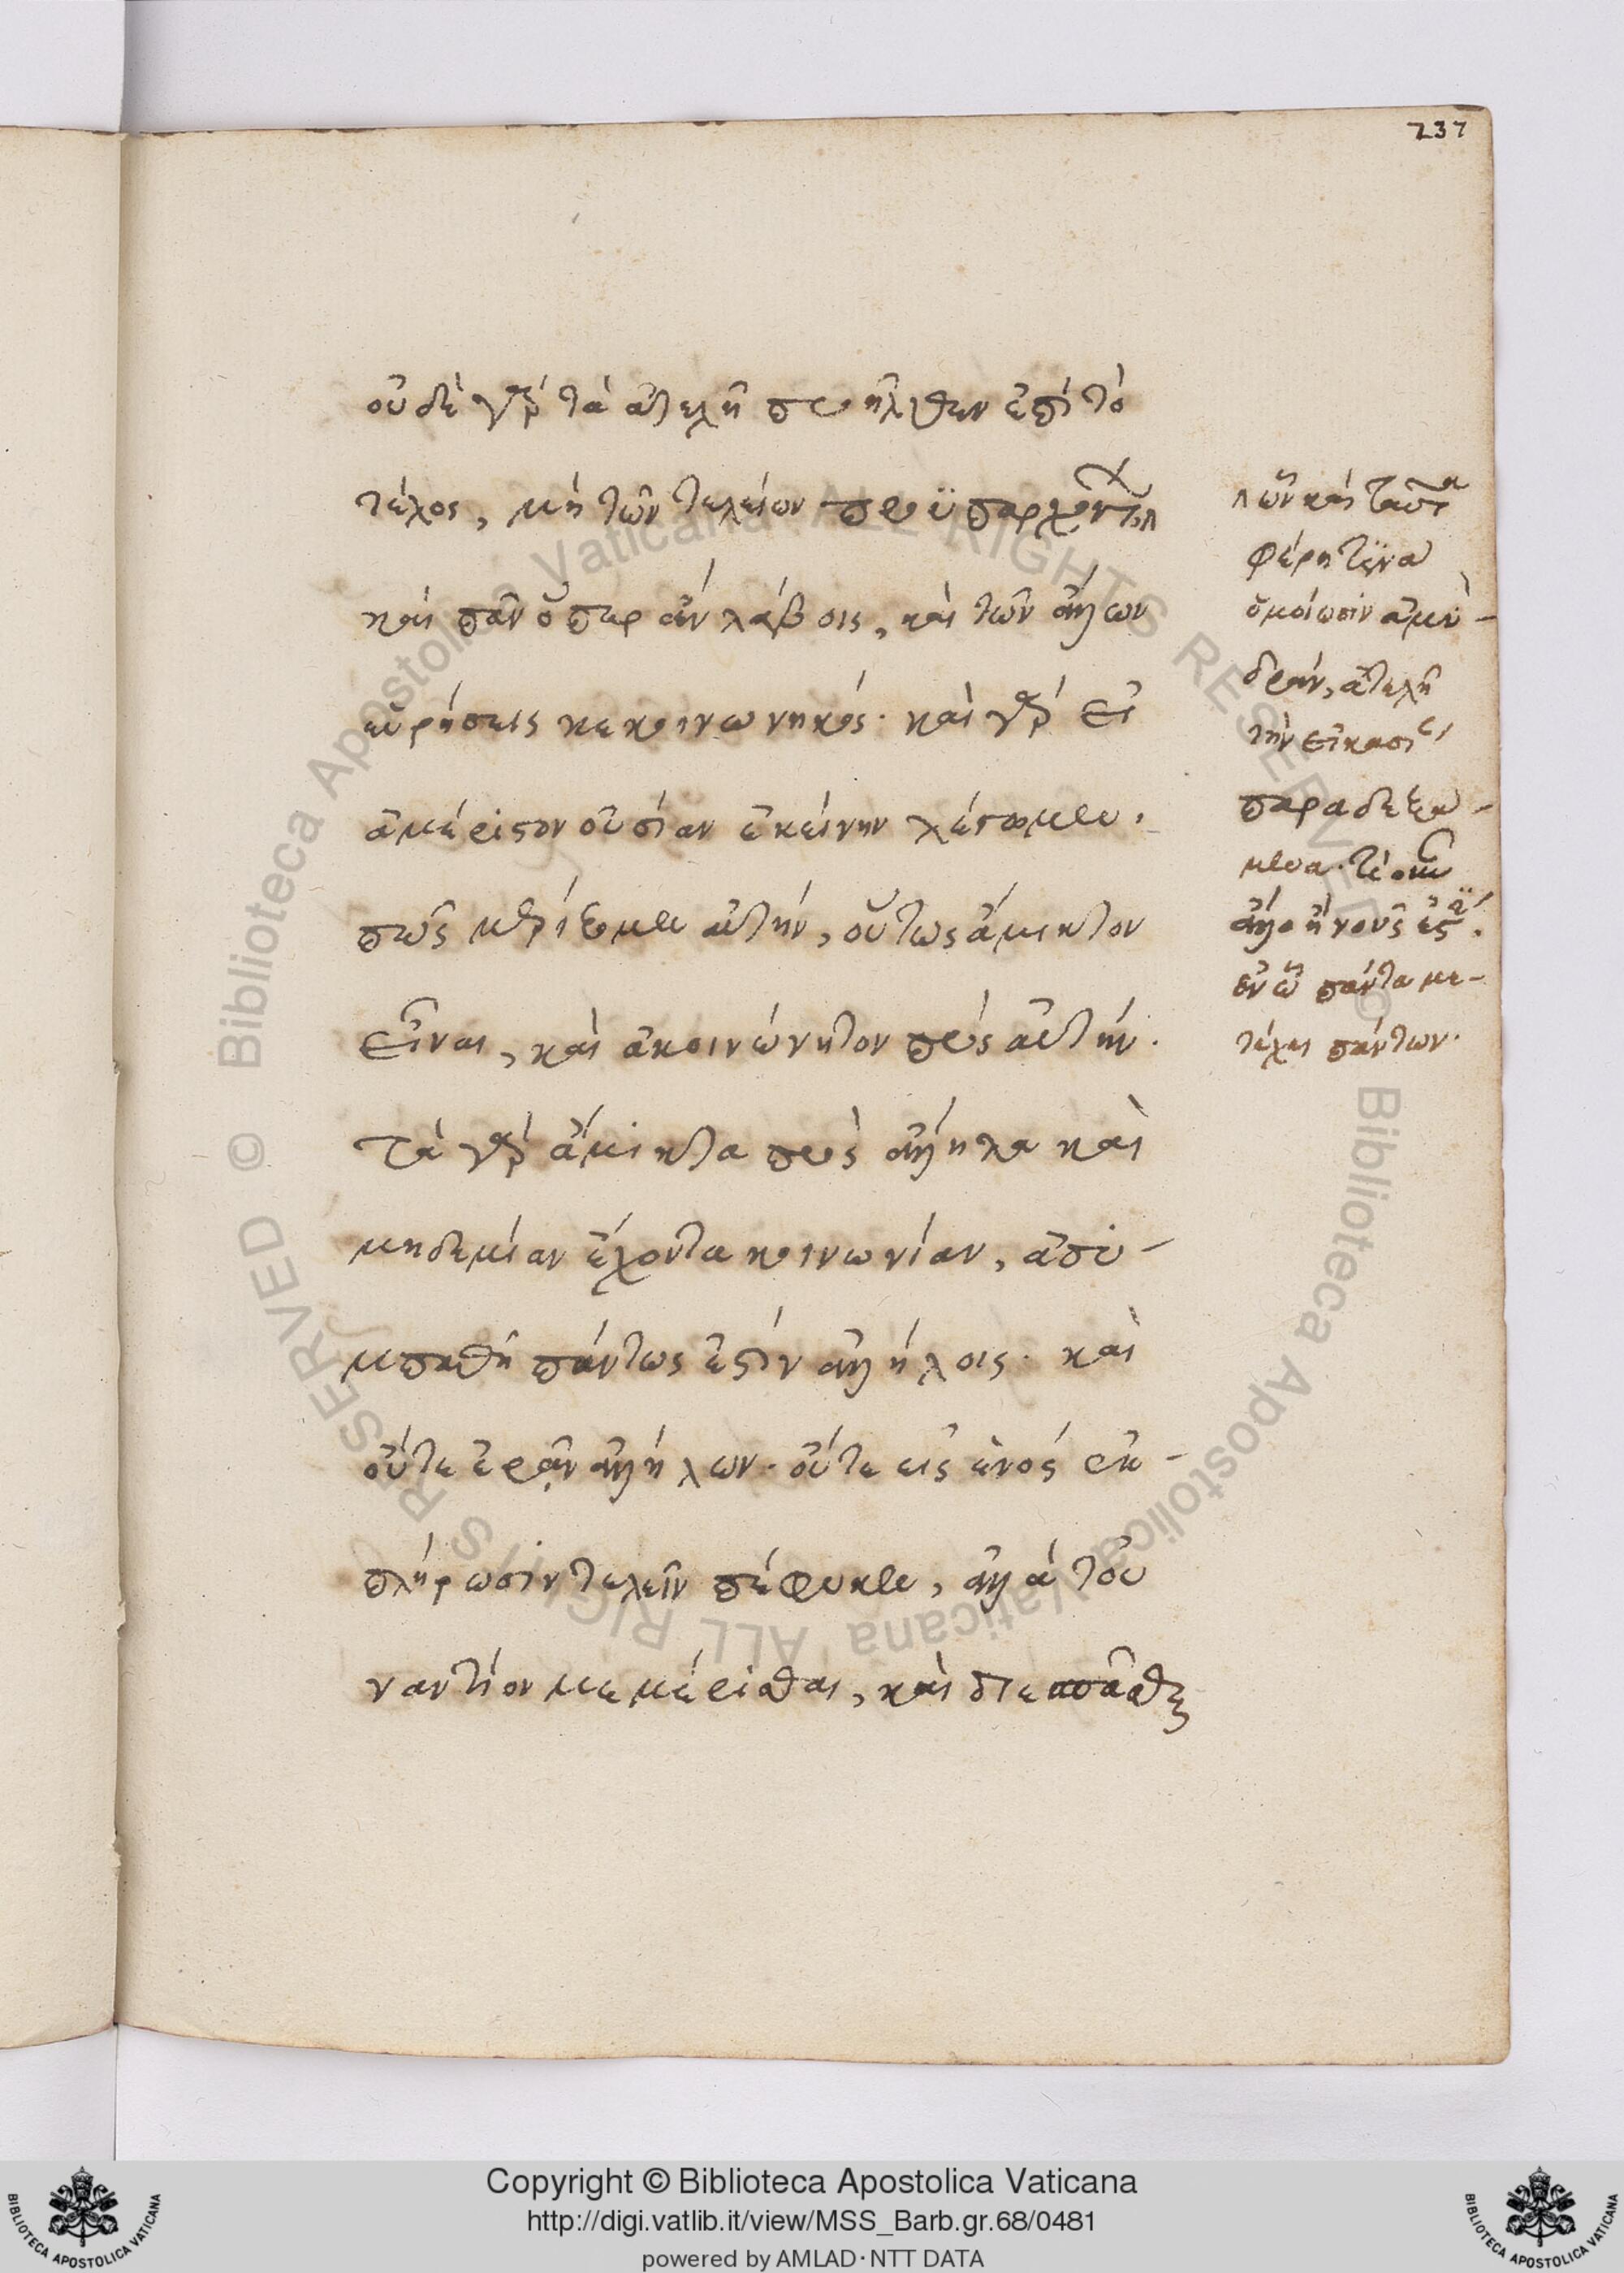 237
οὐδὲ γὰρ τὰ ἀτελῆ προῆλθεν ἐπὶ τὸ
τέλος, μὴ τῶν τελείων προϋπαρχόντων
καὶ πᾶν ὅπερ ἂν λάβοις, καὶ τῶν ἄλλων
εὑρήσεις κεκοινωνηκός. καὶ γὰρ εἰ
ἀμέριστον οὐσίαν ἐκείνην λέγομεν.
πῶς μερίζομεν αὐτήν, οὕτως ἄμικτον
εἶναι, καὶ ἀκοινώνητον πρὸς αὐτήν.
τὰ γὰρ ἄμικτα πρὸς ἄλληλα καὶ
μηδεμίαν ἔχοντα κοινωνίαν, ἀσυ-
μπαθῆ πάντως ἐστὶν ἀλλήλοις. καὶ
οὔτε ἐρᾶν ἀλλήλων. οὔτε εἰς ἑνὸς ἐκ-
πλήρωσιν τελεῖν πέφυκεν, ἀλλὰ τοὐ
ναντίον μεμερίσθαι, καὶ διεσπᾶσθαι
λῶν καὶ ταῦτα
φέρῃ τινα
ὁμοίωσιν ἀμυ-
δράν, ἀτελῆ
τὴν εἰκασί
παραδεξα-
μενα. τί οὖν
ἄλλο ἢ νοῦς ἐστί.
ἐν ᾧ πάντα με-
τέχει πάντων.
Copyright © Biblioteca Apostolica Vaticana
http://digi.vatlib.it/view/MSS_Barb.gr.68/0481
powered by AMLAD·NTT DATA
BIBLIOTECA APOSTOLICA VATICANA
BIBLIOTECA APOSTOLICA VATICANA
© Biblioteca Apostolica Vaticana ALL RIGHTS RESERVED © Biblioteca Apostolica Vaticana ALL RIGHTS RESERVED